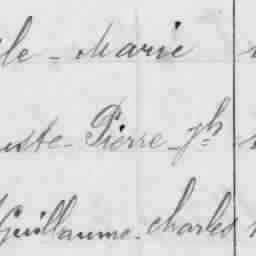 le - Marie
uste - Pierre - Jh
Guillaume - Charles